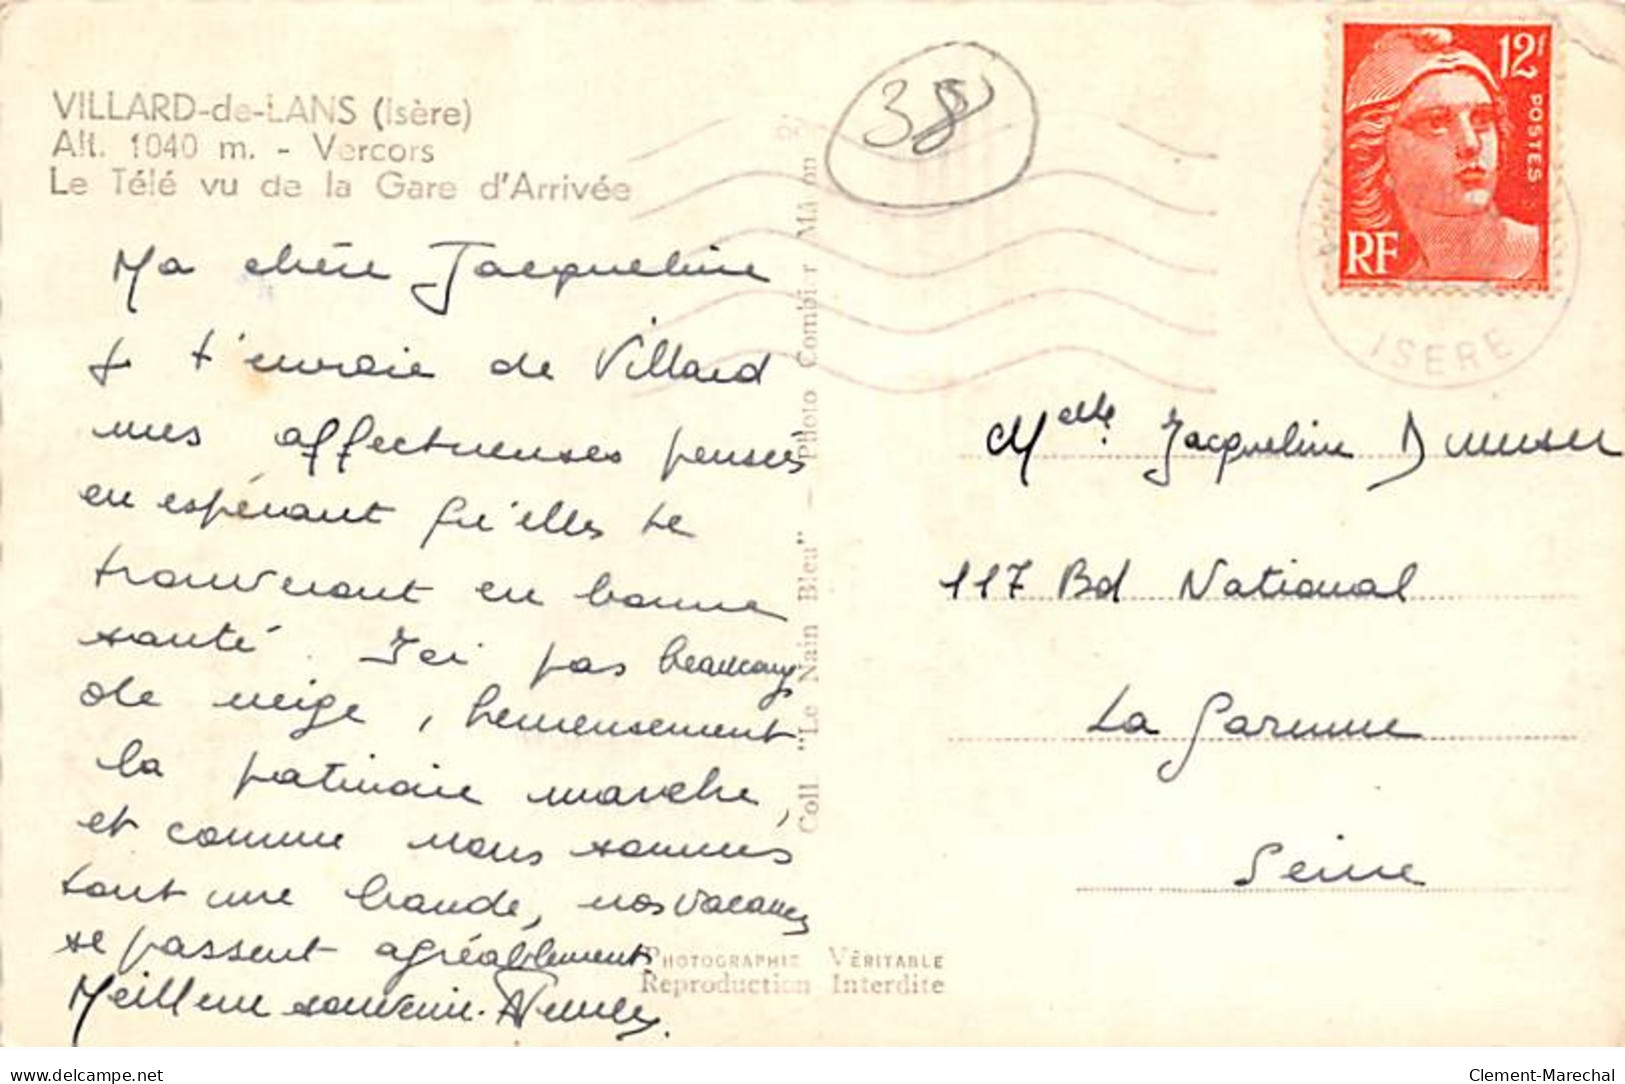 VILLARD-de-LANS (Isère)
Alt. 1040 m. - Vercors
Le Télé vu de la Gare d'Arrivée
38
12F
POSTES
RF
ISERE
Ma chère Jacqueline
Je t'envoie de Villard
mes affectueuses pensées
en espérant qu'elles te
trouveront en bonne
santé. Ici pas beaucoup
de neige, heureusement
la patinoire marche,
et comme nous sommes
tout une bande, nos vacances
se passent agréablement
Meilleur souvenir.
Coll "Le Nain Bleu" - Photo Combier Mâcon
Melle Jacqueline
117 Bd National
La Garenne
Seine
PHOTOGRAPHIE VÉRITABLE
Reproduction Interdite
delcampe.net
Clement-Marechal